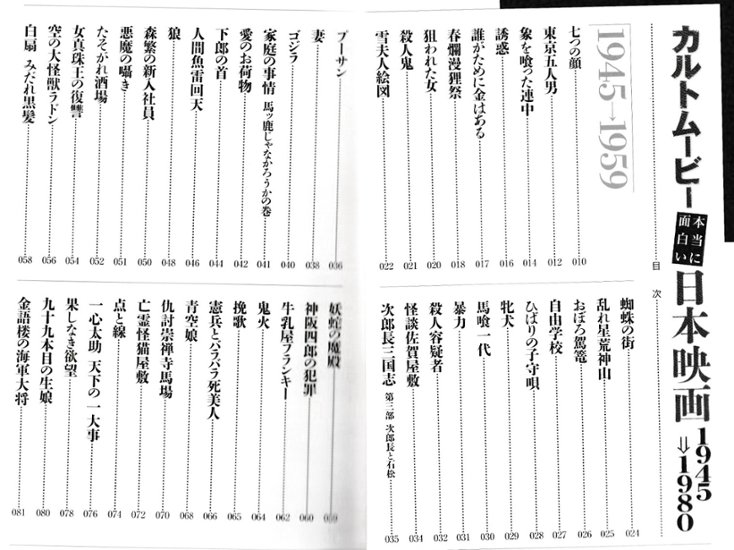 カルトムービー
本当に面白い
日本映画
1945⇒1980
目次
1945→1959
七つの顔 010
東京五人男 012
象を喰った連中 014
誘惑 016
誰がために金はある 017
春爛漫狸祭 018
狙われた女 020
殺人鬼 021
雪夫人絵図 022
蜘蛛の街 024
乱れ星荒神山 025
おぼろ駕籠 026
自由学校 027
ひばりの子守唄 028
牝犬 029
馬喰一代 030
暴力 031
殺人容疑者 032
怪談佐賀屋敷 034
次郎長三国志 第三部 次郎長と石松 035
プーサン 036
妻 038
ゴジラ 040
家庭の事情 馬ッ鹿じゃなかろうかの巻 041
愛のお荷物 042
下郎の首 044
人間魚雷回天 046
狼 048
森繁の新入社員 050
悪魔の囁き 051
たそがれ酒場 052
女真珠王の復讐 054
空の大怪獣ラドン 056
白扇 みだれ黒髪 058
妖蛇の魔殿 059
神阪四郎の犯罪 060
牛乳屋フランキー 062
鬼火 064
挽歌 065
憲兵とバラバラ死美人 066
青空娘 068
仇討崇禅寺馬場 070
亡霊怪猫屋敷 072
点と線 074
一心太助 天下の一大事 076
果しなき欲望 078
九十九本目の生娘 080
金語楼の海軍大将 081